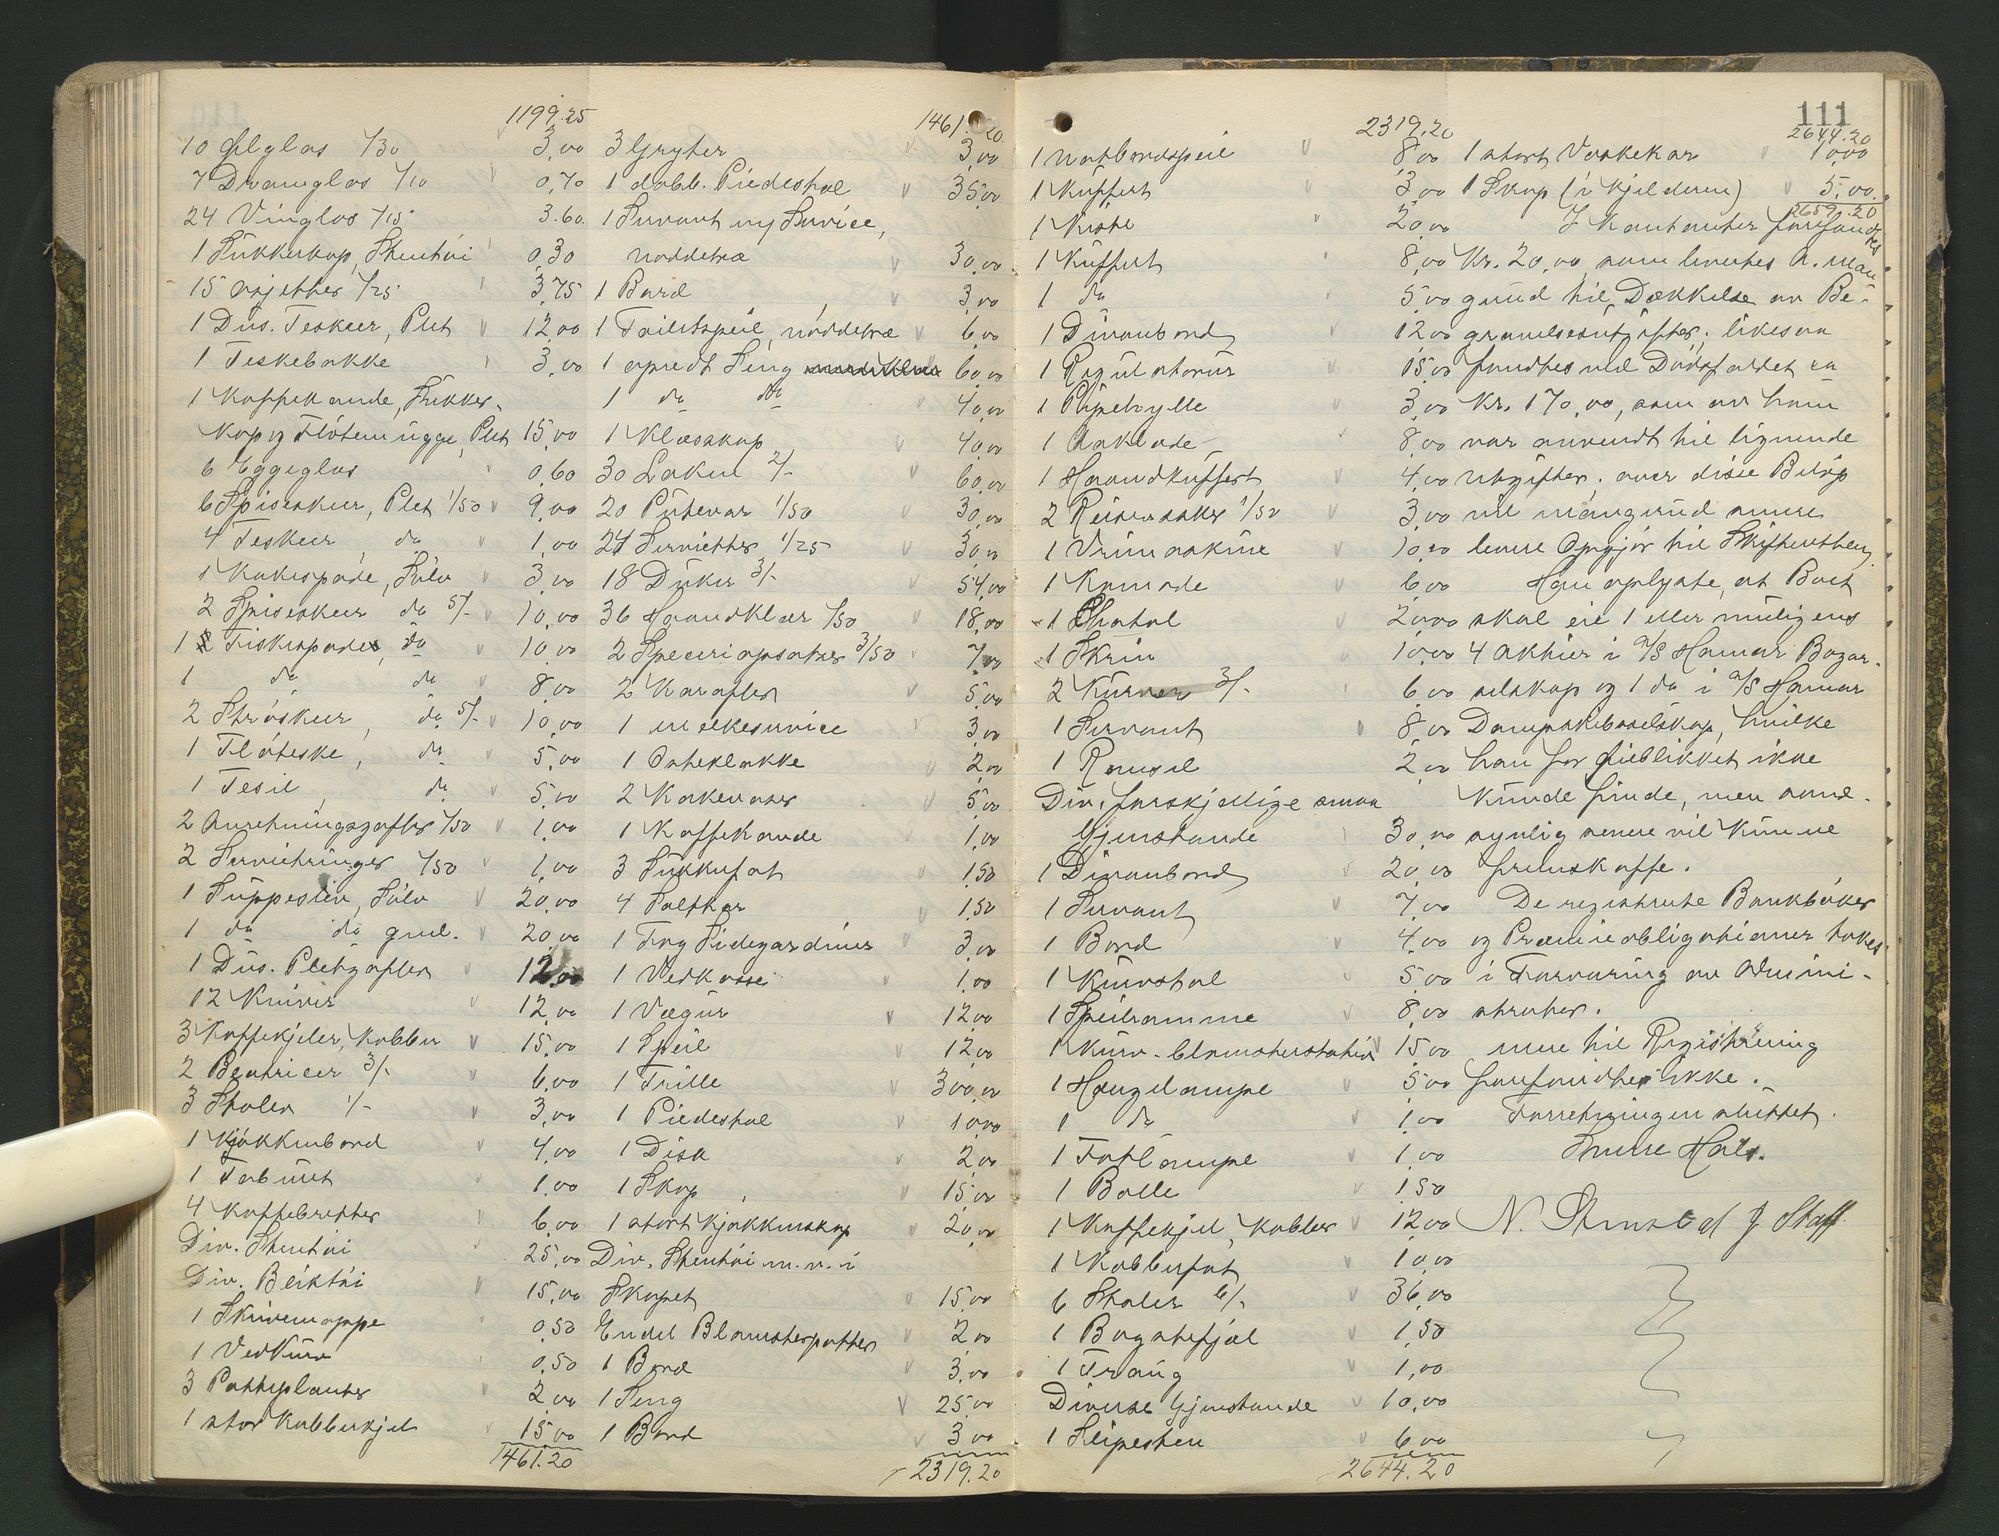 1199.25
10 Ølglas 1/30 3,00
7 Dramglas 1/10 0,70
24 Vinglas 1/15 3.60
1 Sukkerkop, Stentøi 0,30
15 Asjetter 1/25 3,75
1 Dus. Teskeer, Plet 12,00
1 Teskebakke 3,00
1 Kaffekande, Sukker-
kop og Flötemugge, Plet 15,00
6 Eggeglas 0,60
6 Spiseskeer, Plet 1/50 9,00
4 Teskeer, do 1,00
1 Kakespade, Sölv 3,00
2 Spiseskeer do 5/- 10,00
1 Fiskespade, do 10,00
1 do do 8,00
2 Ströskeer, do 5/- 10,00
1 Flöteske, do 5,00
1 Tesil, do 5,00
2 Anretningsgafler 1/50 1,00
2 Servietringer 1/50 1,00
1 Suppeslev, Sölv 20,00
1 do do gml. 20,00
1 Dus. Pletgafler 12,00
12 Kniver 12,00
3 Kaffekjeler, Kobber 15,00
2 Beatricer 3/- 6,00
3 Stoler 1/- 3,00
1 Kjøkkenbord 4,00
1 Taburet 1,00
4 Kaffebretter 6,00
Div. Stentøi 25,00
Div. Bliktøi 15,00
1 Skrivemappe 0,50
1 Vedkurv 0,50
3 Potteplanter 2,00
1 stor Kobberkjel 15,00
1461.20
1461.20
3 Gryter 3,00
1 dobb. Piedestal 35,00
1 Servant m/ Service,
nøddetræ 30,00
1 Bord 3,00
1 Toiletspeil, nøddetræ 6,00
1 opredt Seng 60,00
1 do do 40,00
1 Klæsskap 40,00
30 Laken 2/- 60,00
20 Putevar 1/50 30,00
24 Servietter 1/25 30,00
18 Duker 3/- 54,00
36 Haandklær 1/50 18,00
2 Speceriopsatser 3/50 7,00
2 Karafler 5,00
1 melkeservice 3,00
1 Osteklokke 2,00
2 Kakevaser 5,00
1 Kaffekande 1,00
3 Sukkerfat 1,50
4 Saltkar 1,50
1 Fag Sidegardiner 3,00
1 Vedkasse 1,00
1 Vægur 12,00
1 Speil 12,00
1 Trille 300,00
1 Piedestal 10,00
1 Disk 2,00
1 Skap, 15,00
1 stort Kjøkkenskap 20,00
Div. Stentøi m.v. i
Skapet 15,00
Endel Blomsterpotter 2,00
1 Bord 3,00
1 Seng 25,00
1 Bord 3,00
2319.20
2319.20
1 Natbordspeil 8,00
1 Kuffert 3,00
1 Kiste 20,00
1 Kuffert 8,00
1 do 5,00
1 Divanbord 12,00
1 Regulatorur 15,00
1 Pipehylle 3,00
1 Aaklæde 8,00
1 Haandkuffert 4,00
2 Reisesække 1/50 3,00
1 Vrimaskine 10,00
1 Komode 6,00
1 Chatol 20,00
1 Skrin 10,00
2 Kurver 3/- 6,00
1 Servant 8,00
1 Remsel 2,00
Div. forskjellige smaa
Gjenstande 30,00
1 Divanbord 20,00
1 Servant 7,00
1 Bord 4,00
1 Kurvstol 5,00
1 Speilramme 8,00
1 Kurv-blomsterstativ 15,00
1 Hengelampe 5,00
1 do 1,00
1 Fotlampe 1,00
1 Bolle 1,50
1 Kaffekjel, Kobber 12,00
1 Kobberfat 10,00
6 Stoler 6/- 36,00
1 Bagstefjæl 1,50
1 Traug 1,00
Diverse Gjenstande 10,00
1 Slipesten 6,00
2644.20
111
2644.20
1 stort Vaskekar 10,00
1 Skap (i Kjelderen) 5,00
2659.20
I Kontanter forefandtes
Kr. 20,00, som levertes A. Man
grud til Dækkelse av Be-
gravelsesutgifter; likesaa
fandtes ved Dødsfaldet ca
Kr. 170,00, som av ham
var anvendt til lignende
Utgifter; over disse Beløp
vil mangrud senere
levere Opgjør til Skifteretten.
Han oplyste, at Boet
skal eie 1 eller muligens
4 Aktier i A/S Hamar Bazar-
selskap og 1 do i A/S Hamar
Dampskibsselskap, hvilke
han for øieblikket ikke
kunde finde, men sand-
synlig senere vil kunne
fremskaffe.
De registrerte Bankbøker
og Præmieobligationer tokes
i Forvaring av Admini-
strator.
mere til Registrering
forefandtes ikke.
Forretningen sluttet.
Hals.
N. Stensrud J. Staff